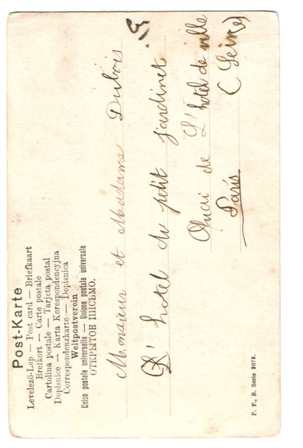 Post-Karte
Levelező-Lap — Post card — Briefkaart
Brefkort — Carte postale
Cartolina postale — Tarjeta postal
Dopisnice — Karta Korespondencyjna
Correspondenzkarte — Dopisnica
Weltpostverein
Union postale universelle — Unione postale universale
ОТКРЫТОЕ ПИСЬМО.
Monsieur et Madame Dubois
L'hotel du petit jardinet
Quai de L'hotel de ville
Paris (Seine)
P. F., B. Serie